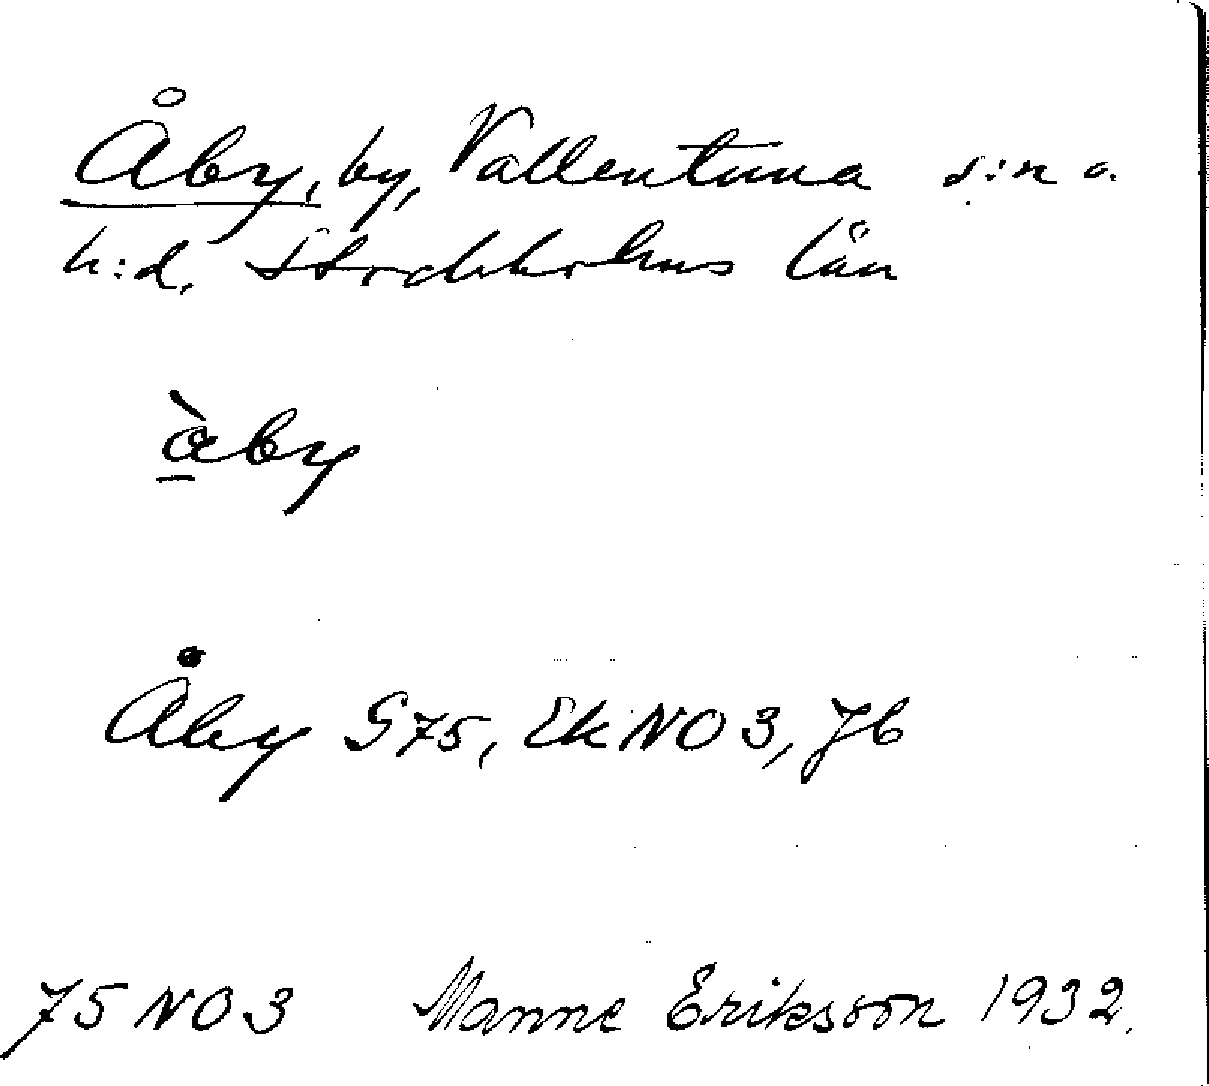 Åby, by, Vallentuna s:n o.
h:d, Stockholms län
å̀by
Åby G75, Ek NO 3, Jb
75 NO 3 Manne Eriksson 1932.